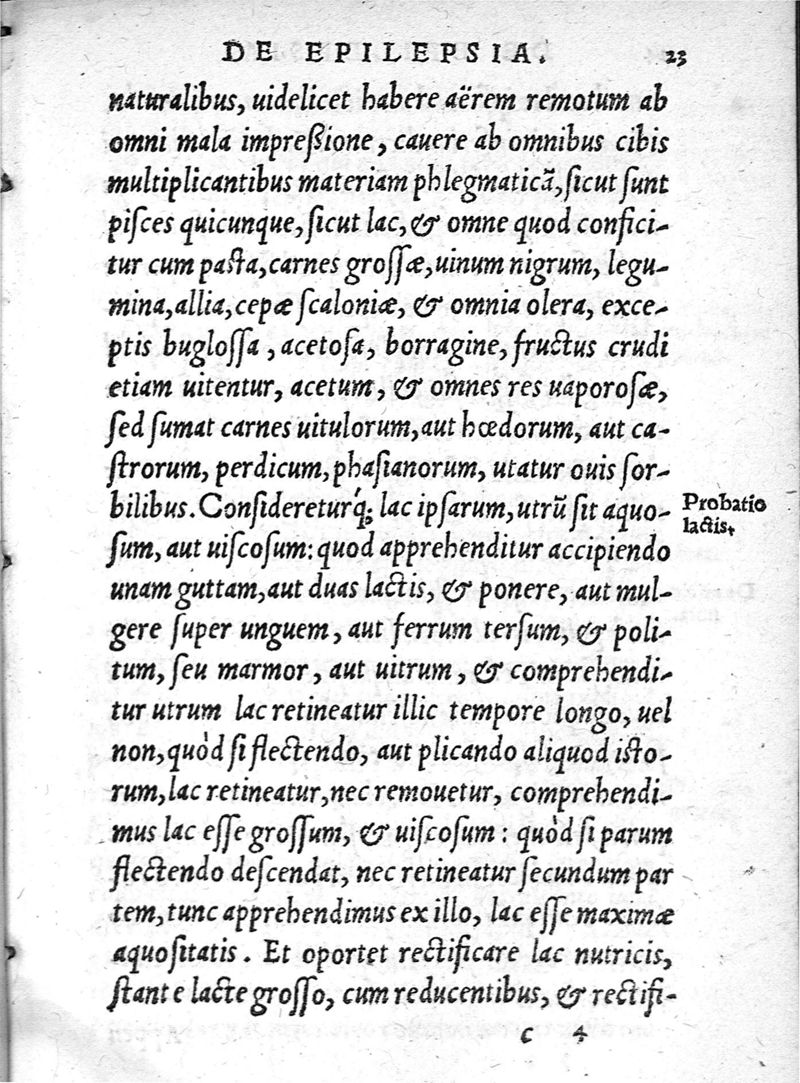 DE EPILEPSIA. 23
naturalibus, uidelicet habere aërem remotum ab
omni mala impreßione, cauere ab omnibus cibis
multiplicantibus materiam phlegmaticã, ſicut ſunt
piſces quicunque, ſicut lac, & omne quod confici-
tur cum paſta, carnes groſſæ, uinum nigrum, legu-
mina, allia, cepæ ſcaloniæ, & omnia olera, exce-
ptis bugloſſa, acetoſa, borragine, fructus crudi
etiam uitentur, acetum, & omnes res uaporoſæ,
ſed ſumat carnes uitulorum, aut hœdorum, aut ca-
ſtrorum, perdicum, phaſianorum, utatur ouis ſor-
bilibus. Conſidereturq́; lac ipſarum, utrũ ſit aquo-
Probatio
lactis.
ſum, aut uiſcoſum: quod apprehenditur accipiendo
unam guttam, aut duas lactis, & ponere, aut mul-
gere ſuper unguem, aut ferrum terſum, & poli-
tum, ſeu marmor, aut uitrum, & comprehendi-
tur utrum lac retineatur illic tempore longo, uel
non, quòd ſi flectendo, aut plicando aliquod iſto-
rum, lac retineatur, nec remouetur, comprehendi-
mus lac eſſe groſſum, & uiſcoſum: quòd ſi parum
flectendo deſcendat, nec retineatur ſecundum par
tem, tunc apprehendimus ex illo, lac eſſe maximæ
aquoſitatis. Et oportet rectificare lac nutricis,
ſtante lacte groſſo, cum reducentibus, & rectifi-
c 4